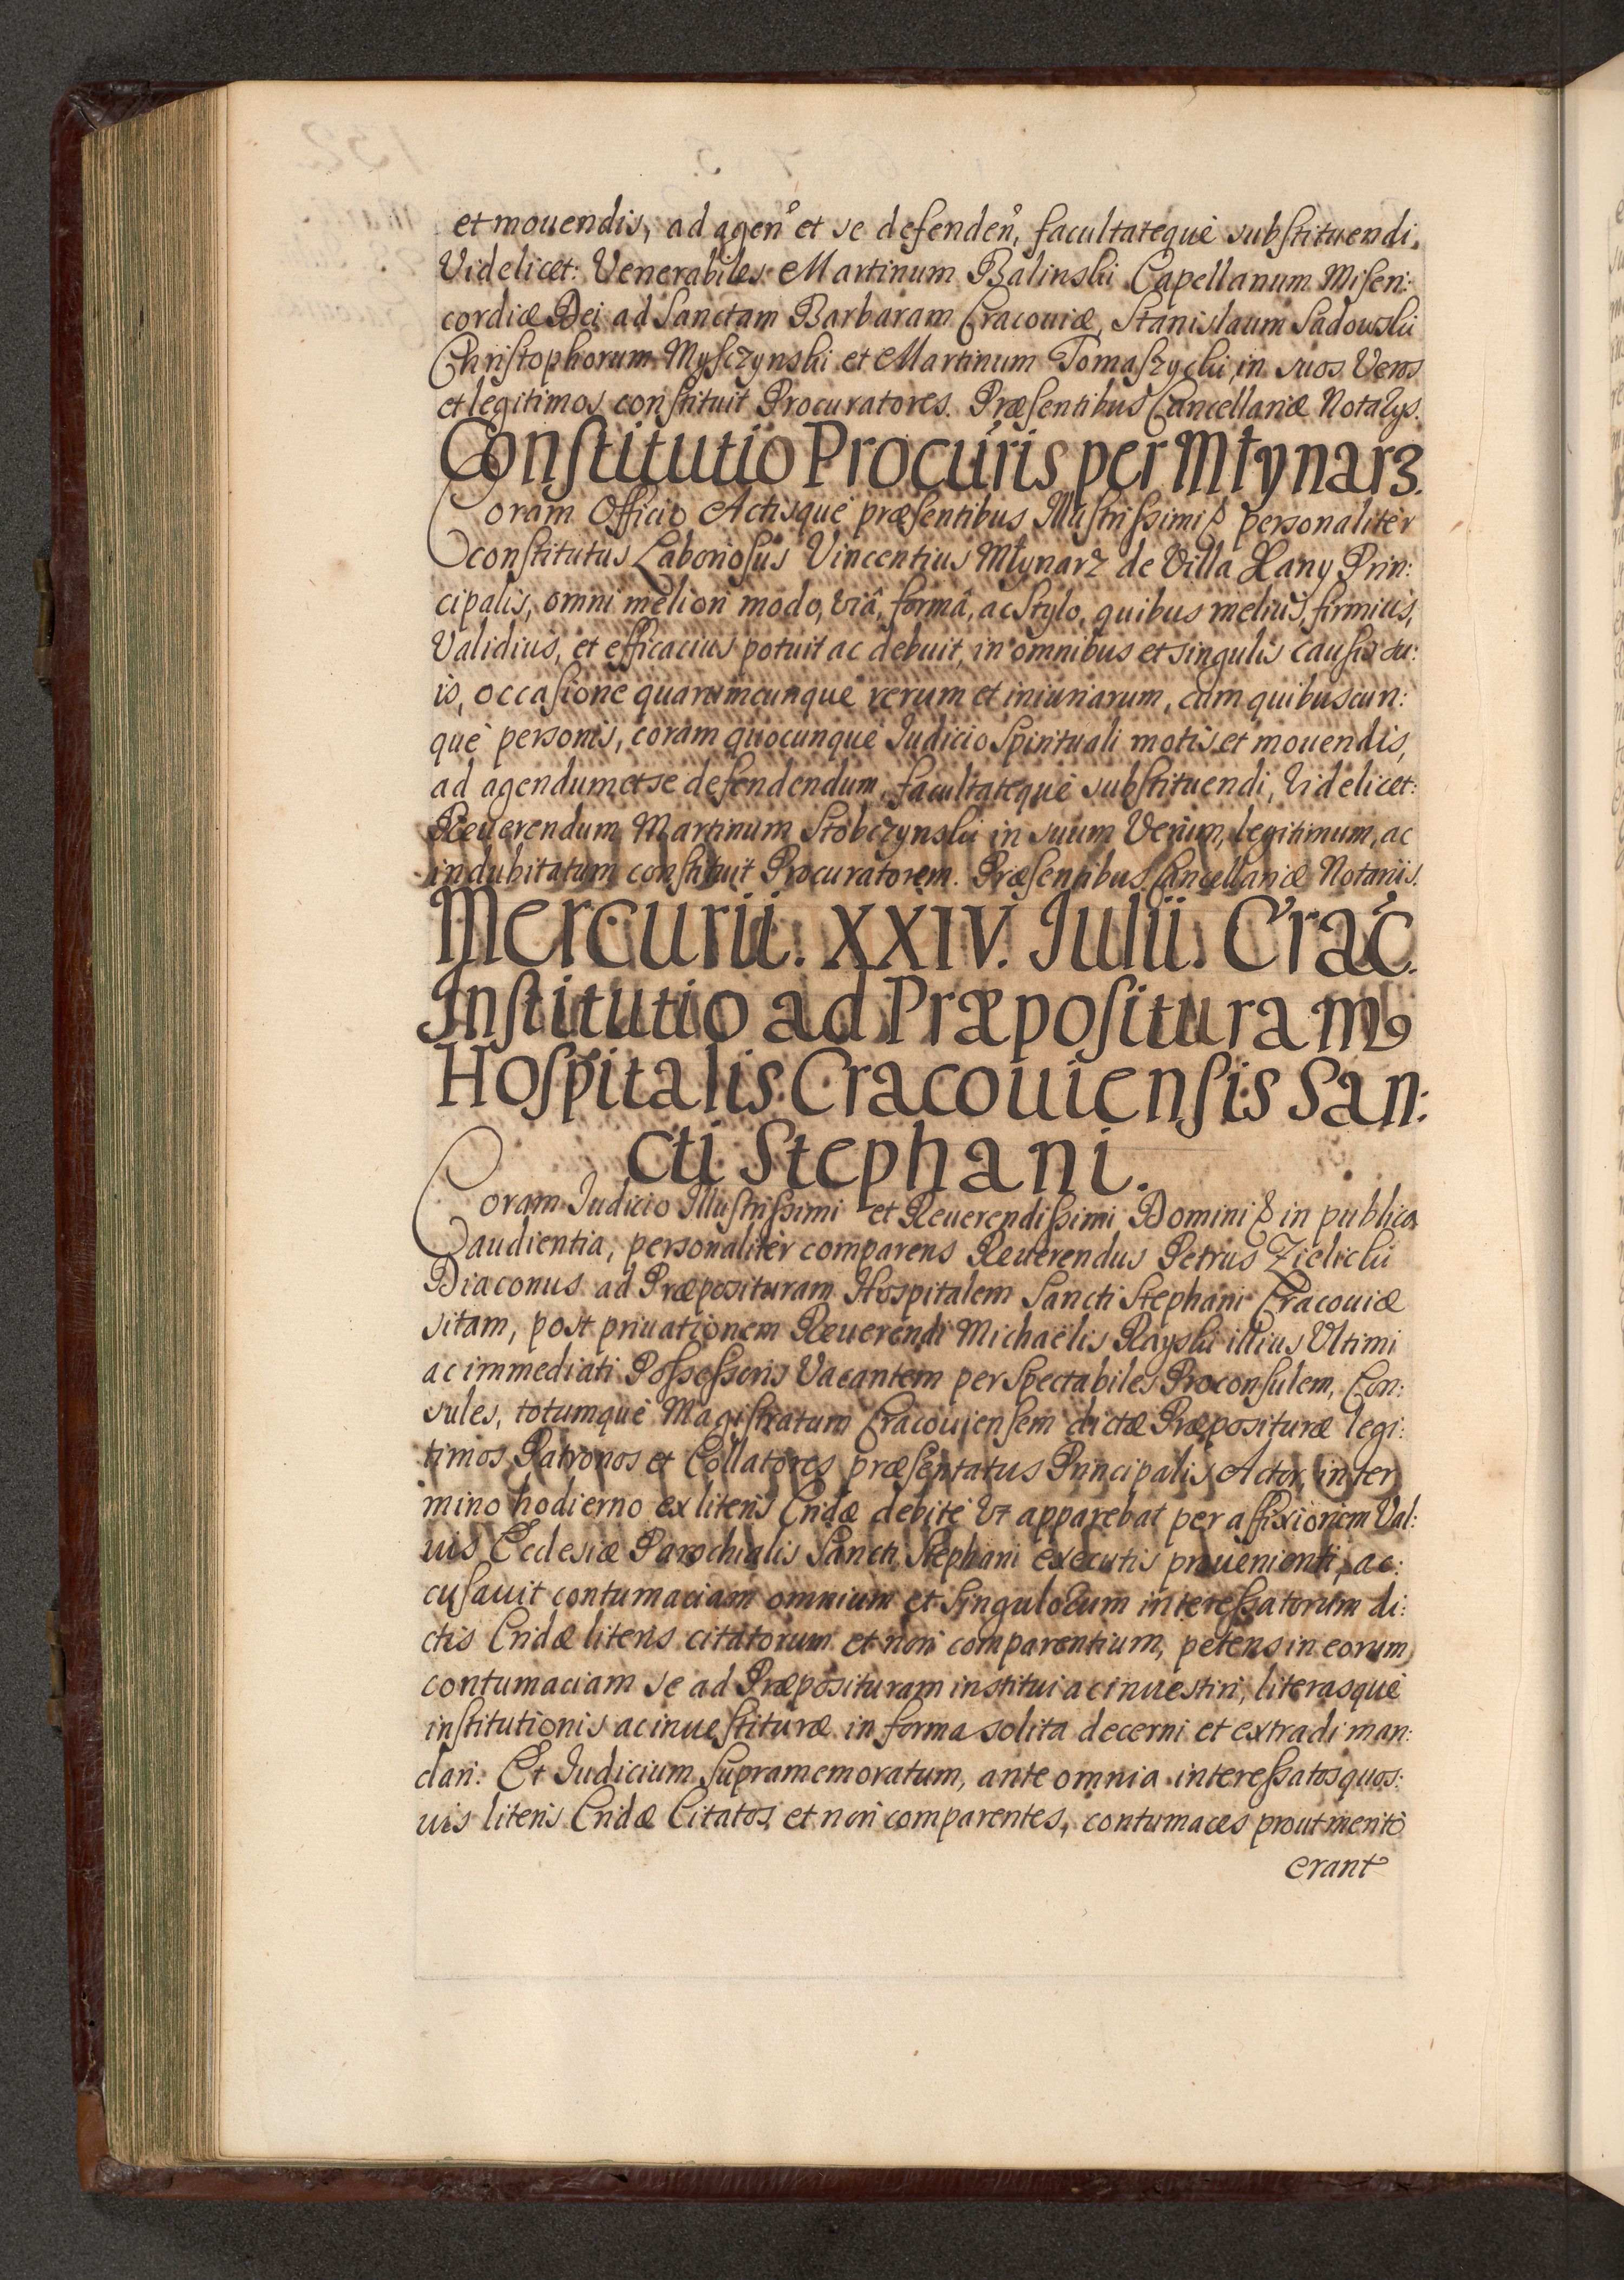 et mouendis, ad agenº et se defendenº, facultateque substituendi,
Videlicet: Venerabiles Martinum Balinski Capellanum Miseri:
cordiæ Dei ad Sanctam Barbaram Cracouiæ, Stanislaum Sadowski
Christophorum Mysczynski et Martinum Tomaszycki, in suos Veros
et legitimos constituit Procuratores. Præsentibus Cancellariæ Notarys.
Constitutio Procuris per Młynarz.
Coram Officio Actisque præsentibus Illustrissimi & personaliter
constitutus Laboriosus Vincentius Młynarz de Villa Hany Prin:
cipalis, omni meliori modo, viâ, formâ, ac stylo, quibus melius, firmius,
Validius, et efficacius potuit ac debuit, in omnibus et singulis causis su:
is, occasione quarumcunque rerum et iniuriarum, cum quibuscun:
que personis, coram quocunque Iudicio Spirituali motis et mouendis,
ad agendum et se defendendum, facultateque substituendi, Videlicet:
Reuerendum Martinum Stobczynski in suum Verum, legitimum, ac
indubitatum constituit Procuratorem. Præsentibus Cancellariæ Notariis.
Mercurii. XXIV. Iulii. Crac.
Institutio ad Præposituram
Hospitalis Cracouiensis San:
cti Stephani.
Coram Iudicio Illustrissimi et Reuerendissimi Domini & in publica
audientia, personaliter comparens Reuerendus Petrus Zielicki
Diaconus ad Præposituram Hospitalem Sancti Stephani Cracouiæ
sitam, post priuationem Reuerendi Michaëlis Rayski illius Vltimi
ac immediati Possessoris Vacantem per Spectabiles Proconsulem, Con:
sules, totumque Magistratum Cracouiensem dictæ Præposituræ legi:
timos Patronos et Collatores præsentatus Principalis Actor, in ter
mino hodierno ex literis Cridæ debite Vt apparebat per affixionem Val:
uis Ecclesiæ Parochialis Sancti Stephani executis prouenienti, ac:
cusauit contumaciam omnium et singulorum interessatorum di:
ctis Cridæ literis citatorum et non comparentium, petens in eorum
contumaciam se ad Præposituram institui ac inuestiri, literasque
institutionis ac inuestituræ in forma solita decerni et extradi man:
dari. Et Iudicium supramemoratum, ante omnia interessatos quos:
uis literis Cridæ Citatos, et non comparentes, contumaces prout merito
erant